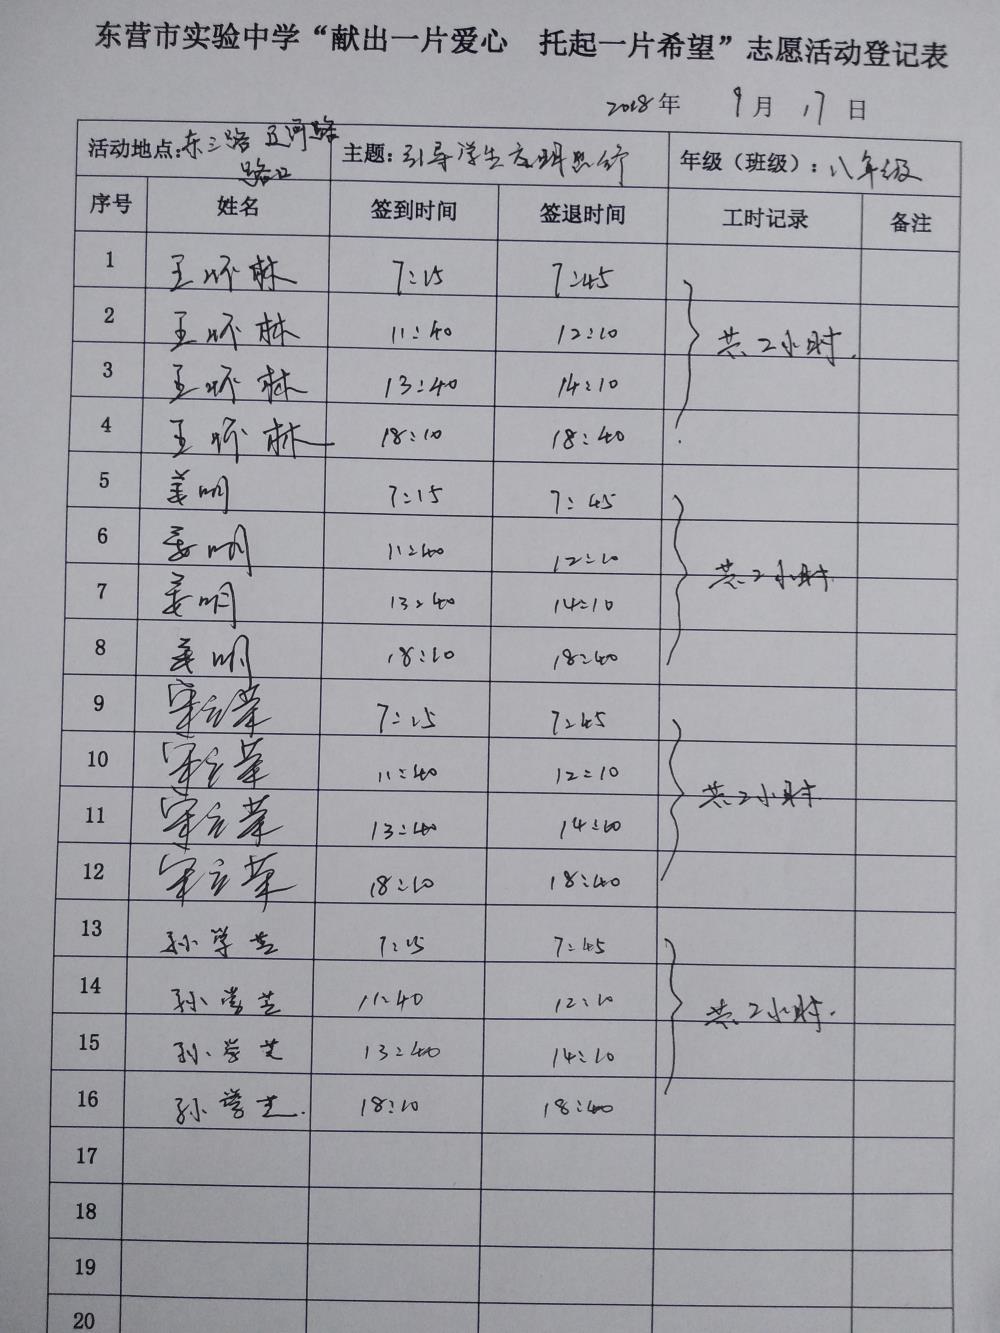 东营市实验中学“献出一片爱心 托起一片希望”志愿活动登记表
2018年 9月 17日
活动地点:东三路 五河路路口 主题:引导学生文明 年级(班级):八年级
序号 姓名 签到时间 签退时间 工时记录 备注
1 王怀林 7:15 7:45
2 王怀林 11:40 12:10 共2小时.
3 王怀林 13:40 14:10
4 王怀林 18:10 18:40
5 姜明 7:15 7:45
6 姜明 11:40 12:10 共2小时
7 姜明 13:40 14:10
8 姜明 18:10 18:40
9 宋立荣 7:15 7:45
10 宋立荣 11:40 12:10 共2小时
11 宋立荣 13:40 14:10
12 宋立荣 18:10 18:40
13 孙学芝 7:15 7:45
14 孙学芝 11:40 12:10 共2小时.
15 孙学芝 13:40 14:10
16 孙学芝. 18:10 18:40
17
18
19
20